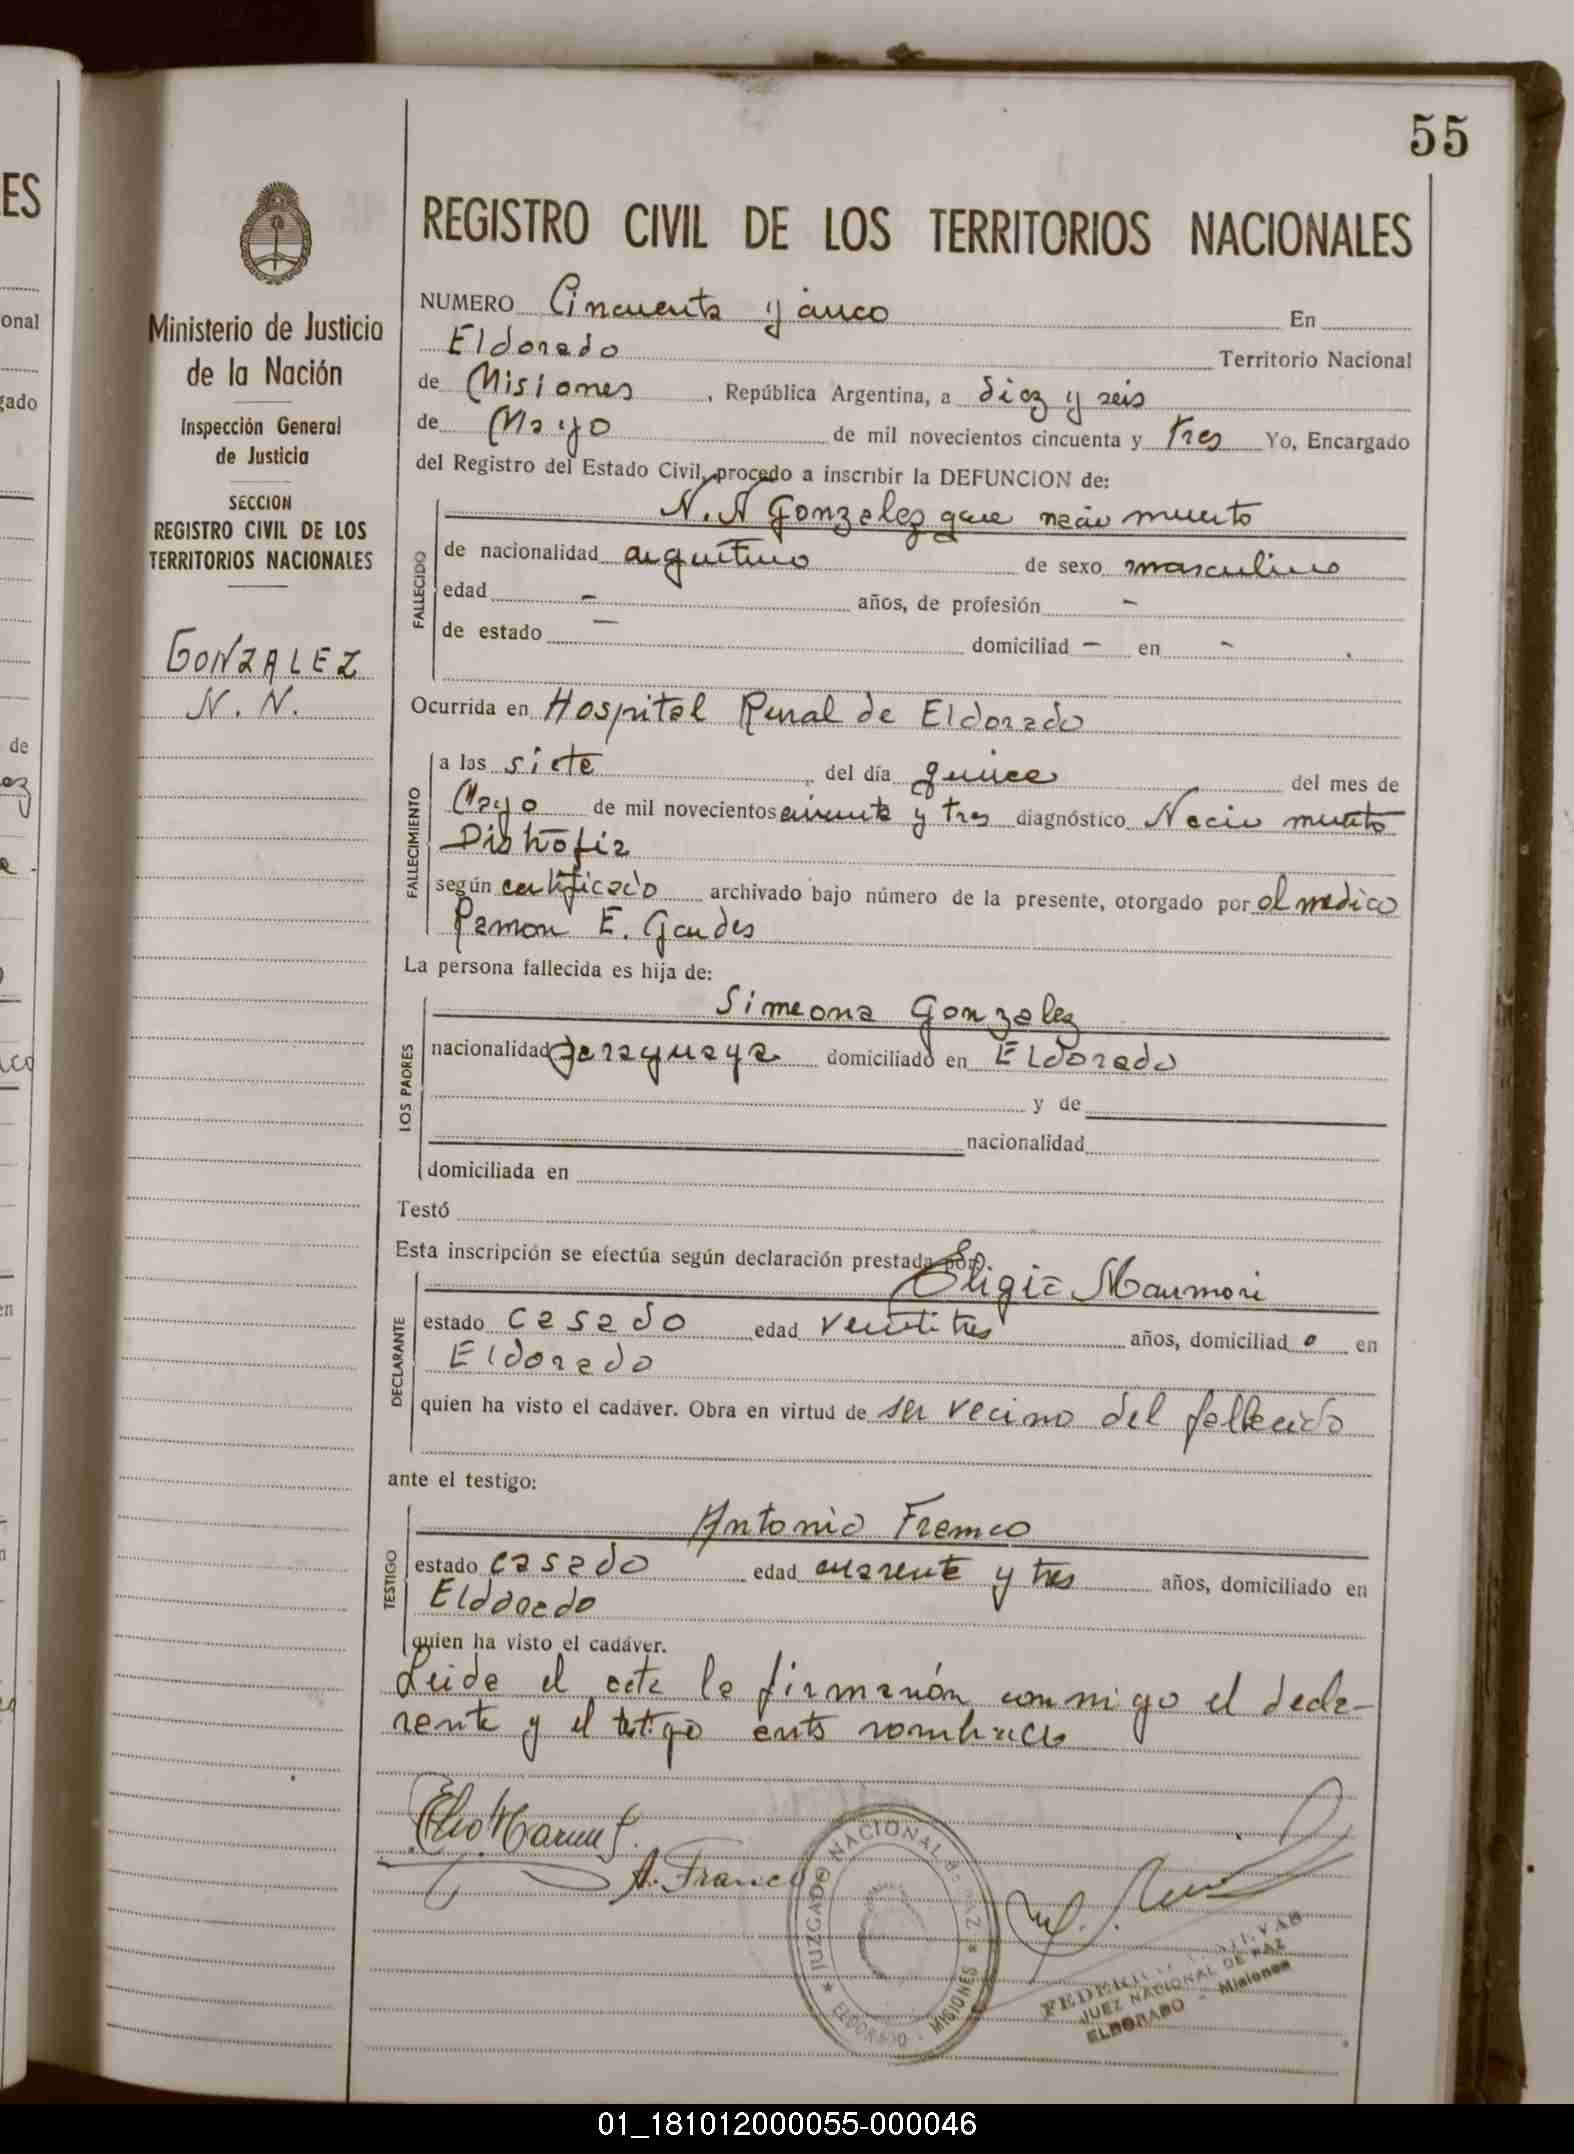 55
ES
onal
gado
de
en
Ministerio de Justicia
de la Nación
Inspección General
de Justicia
SECCION
REGISTRO CIVIL DE LOS
TERRITORIOS NACIONALES
GONZALEZ
N. N.
REGISTRO CIVIL DE LOS TERRITORIOS NACIONALES
NUMERO Cincuenta y cinco En
Eldorado Territorio Nacional
de Misiones, República Argentina, a diez y seis
de Mayo de mil novecientos cincuenta y tres Yo, Encargado
del Registro del Estado Civil, procedo a inscribir la DEFUNCION de:
N. N Gonzalez que nacio muerto
FALLECIDO
de nacionalidad argentino de sexo masculino
edad - años, de profesión -
de estado - domiciliad - en -
Ocurrida en Hospital Rural de Eldorado
FALLECIMIENTO
a las siete del día quince del mes de
Mayo de mil novecientos cincuenta y tres diagnóstico Nacio muerto
Distofia
según certificado archivado bajo número de la presente, otorgado por el medico
Ramon E.
La persona fallecida es hija de:
LOS PADRES
Simeona Gonzalez
nacionalidad paraguaya domiciliado en Eldorado
y de
nacionalidad
domiciliada en
Testó
Esta inscripción se efectúa según declaración prestada por:
DECLARANTE
estado casado edad veintitres años, domiciliad o en
Eldorado
quien ha visto el cadáver. Obra en virtud de ser vecino del fallecido
ante el testigo:
TESTIGO
Antonio Franco
estado casado edad cuarenta y tres años, domiciliado en
Eldorado
quien ha visto el cadáver.
Leida el acta la firmarón conmigo el decla-
rante y el testigo ents nombrados
A. Franco
JUZGADO NACIONAL DE PAZ
ELDORADO - MISIONES
FEDERICO
JUEZ NACIONAL DE PAZ
ELDORADO - Misiones
01_181012000055-000046